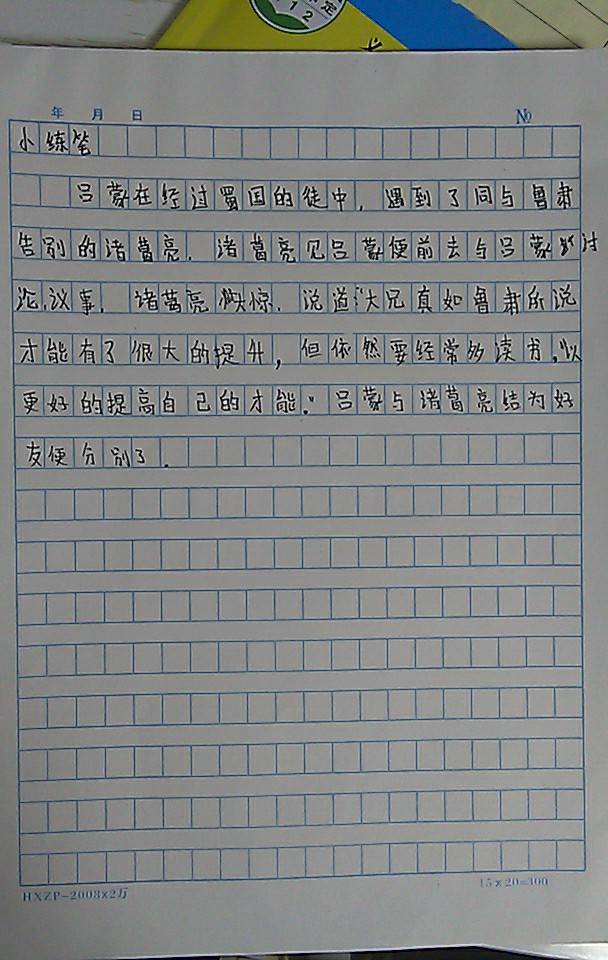 定
1 2
年 月 日 №
小练笔
吕蒙在经过蜀国的徒中，遇到了同与鲁肃
告别的诸葛亮．诸葛亮见吕蒙便前去与吕蒙讨
论议事．诸葛亮大惊．说道："大兄真如鲁肃所说
才能有了很大的提升，但依然要经常多读书，以
更好的提高自己的才能．"吕蒙与诸葛亮结为好
友便分别了．
HXZP-2008×2万 15×20=300